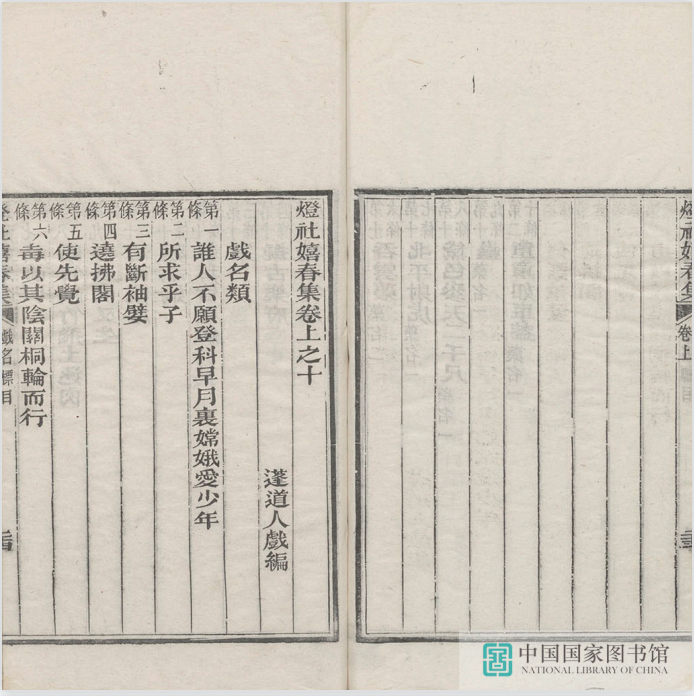 燈社嬉春集
卷上
燈社嬉春集卷上之十
蘧道人戲編
戲名類
第一條 誰人不願登科早月裏嫦娥愛少年
第二條 所求乎子
第三條 有斷袖嬖
第四條 遶拂閣
第五條 使先覺
第六條 毒以其陰關桐輪而行
燈社嬉春集
戲名標目
中国国家图书馆
NATIONAL LIBRARY OF CHINA